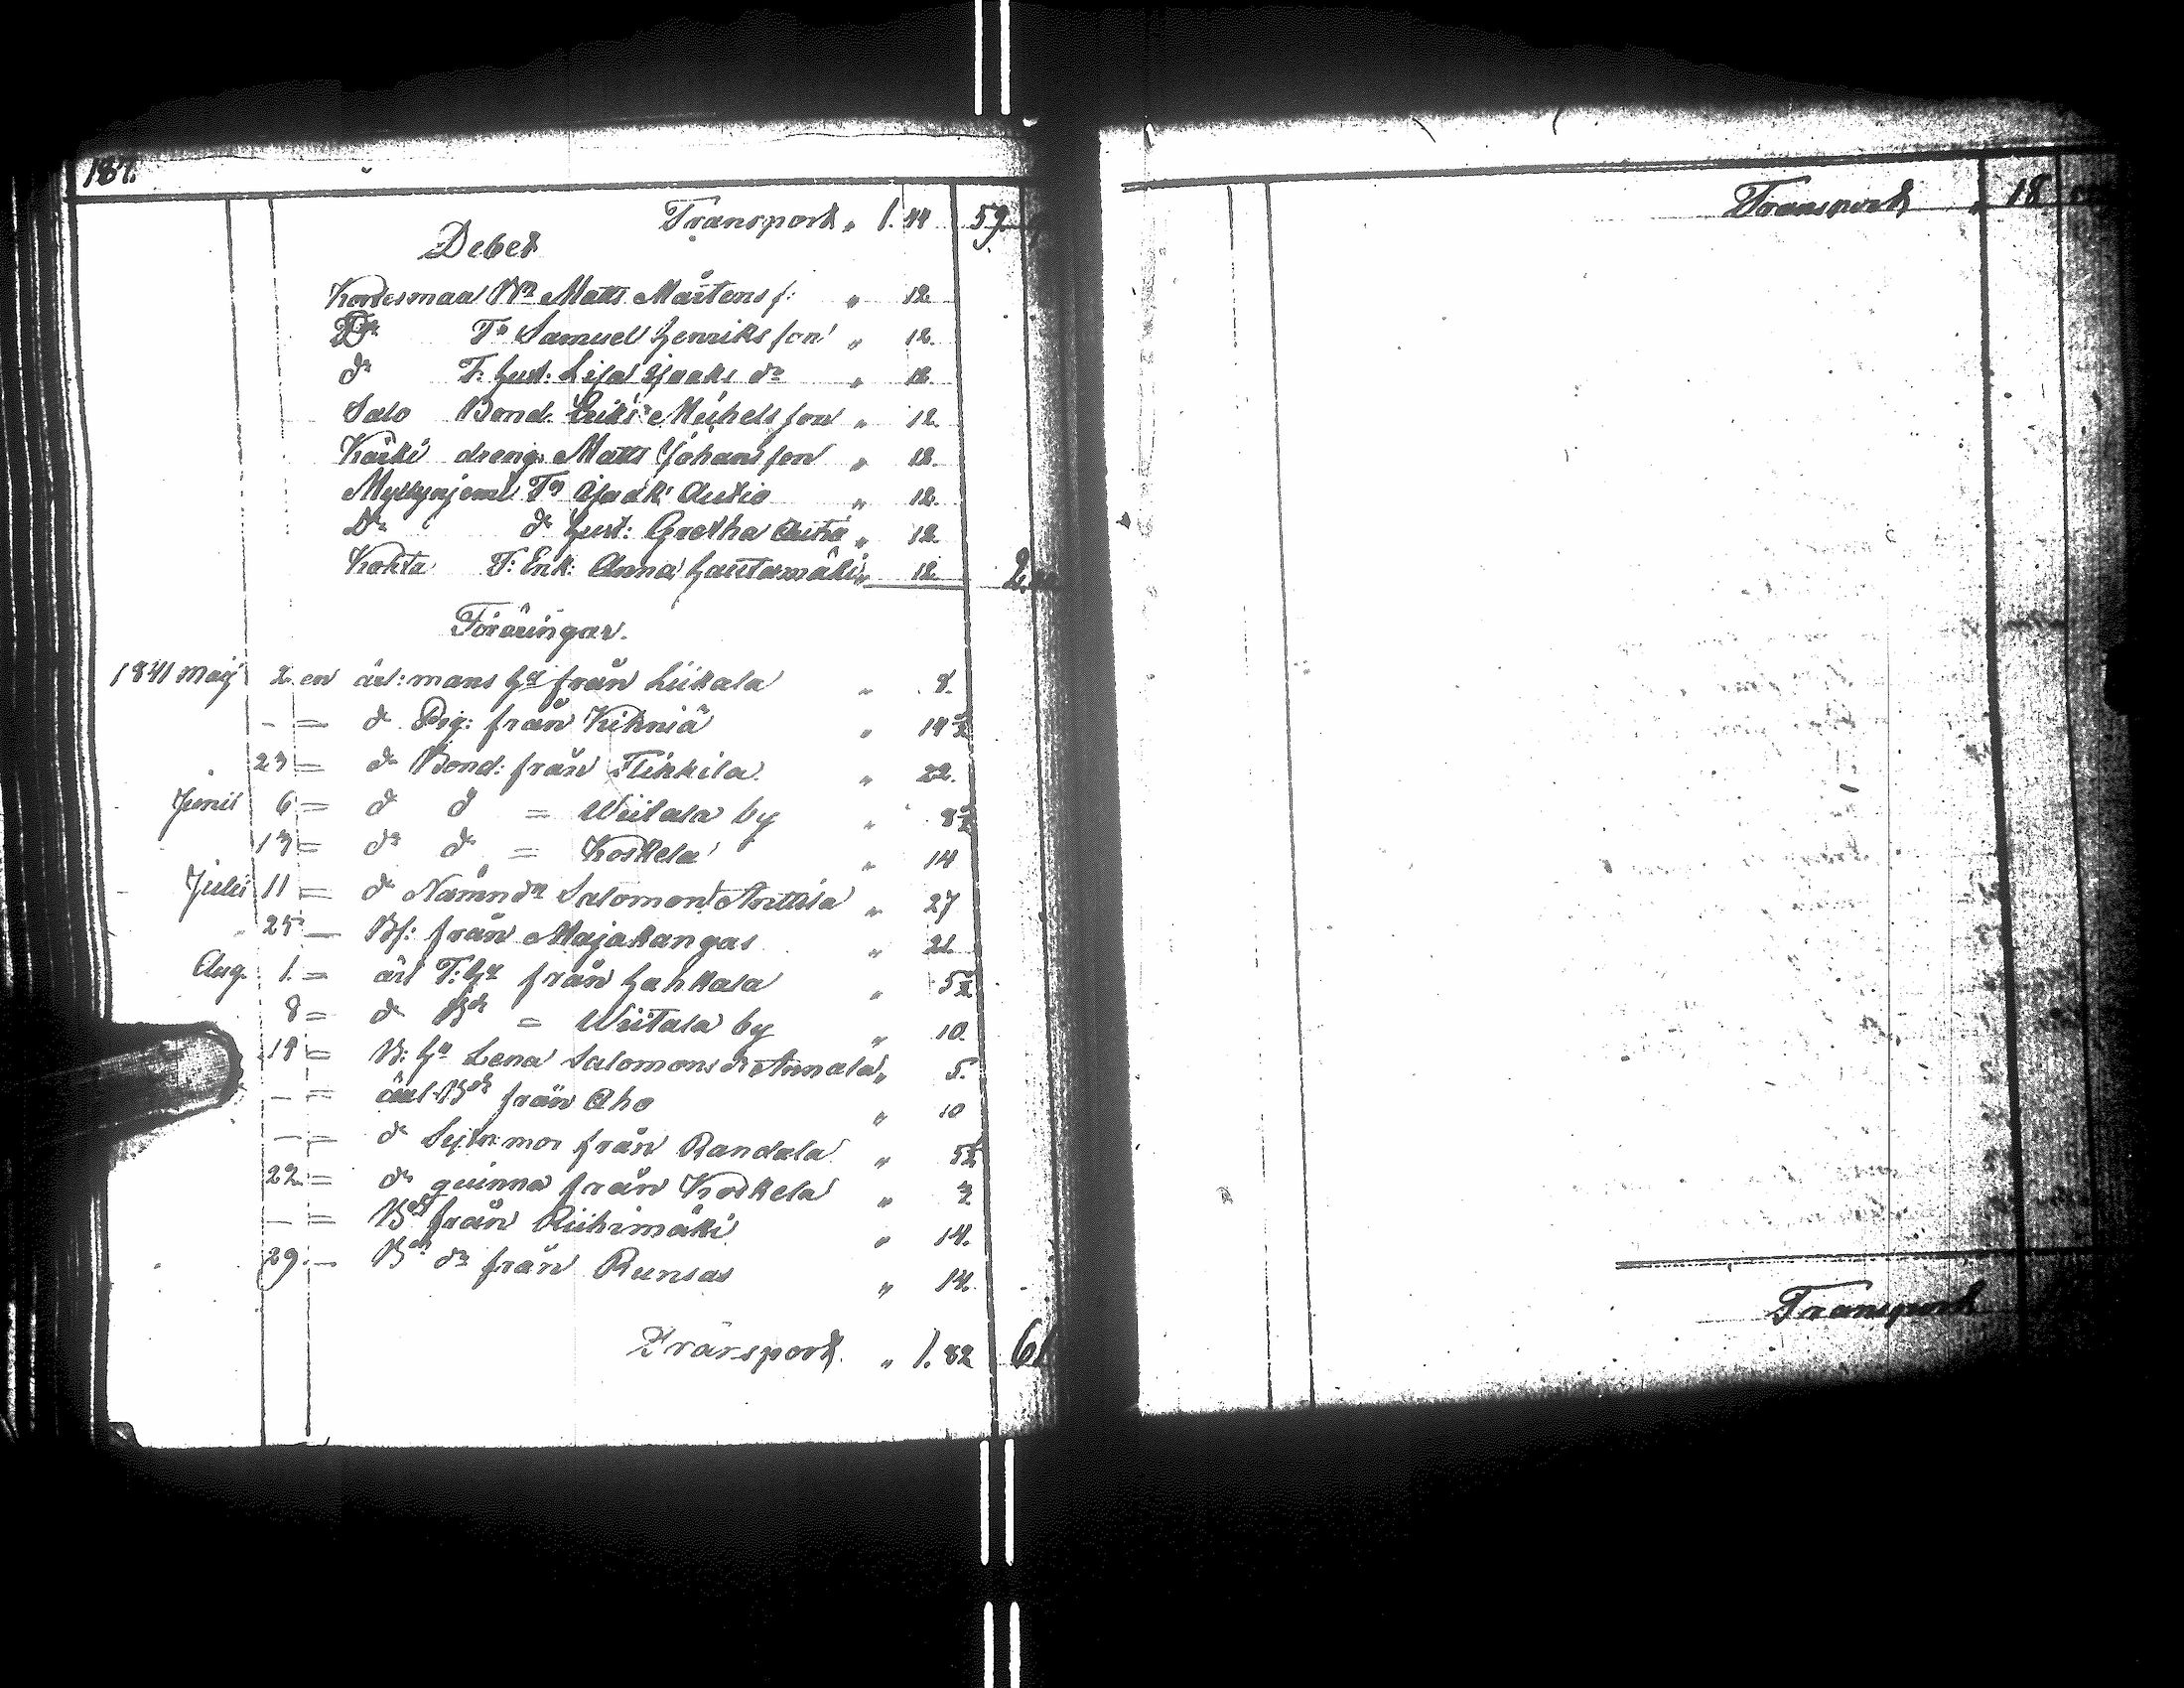 187.
Transport „ 1. 44 59.
Debet
Kordesmaa Bn Matts Mårtens f: „ 12.
Do Tn Samuel Henriks son „ 12.
do T. Hust. Lisa Isaaks dr „ 12.
Salo Bond. Eriks Michels son „ 12.
Karki dreng. Matts Johans son „ 12.
Myllyniemi Tn Isaak Autio „ 12.
Do do Hust: Gretha Autio „ 12.
Kohta T: Enk: Anna Hautamäki „ 12. 2.
Föräringar.
1841 Maij 2. en ärl: mans Ha från Liikala „ 8.
- = do Pig: från Kihniä „ 14½
23 = do Bond: från Flikkilä „ 22.
Junii 6 = do do = Wiitala by „ 8½
13 = do do = Koskela „ 14
Julii 11 = do Nämndn Salomon Anttila „ 27
25 — Bf: från Majakangas „ 21.
Aug. 1. = ärl T: Ha från Hahkala „ 5½
8 = do = Wiitala by „ 10.
19 = B: Ha Lena Salomons dr Annala „ 5.
- = ärl. från Aho „ 10
- = do Sytn mor från Randala „ 5½
22 = do quinna från Koskela „ 7.
- = från Riihimäki „ 14.
29. — dr från Runsas „ 14.
Transport. „ 1. 82 61
Transport „ 18
Transport